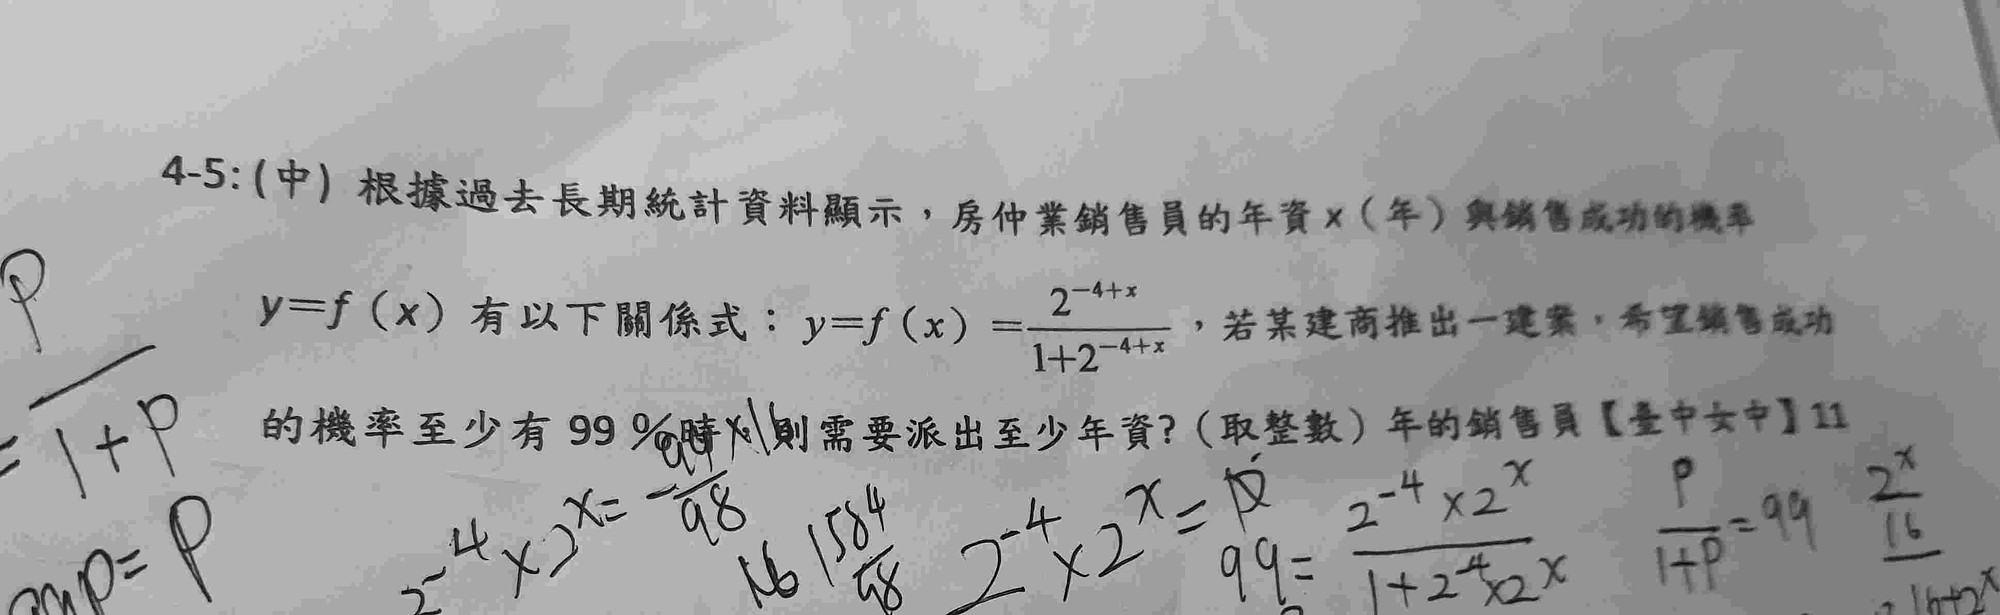 4-5:(中) 根據過去長期統計資料顯示，房仲業銷售員的年資 x（年）與銷售成功的機率
y=f（x）有以下關係式：y=f（x）=\frac{2^{-4+x}}{1+2^{-4+x}}，若某建商推出一建案，希望銷售成功
的機率至少有 99 %時，則需要派出至少年資?（取整數）年的銷售員【臺中女中】11
P
= 1+P
2^{-4}×2^{x}= -\frac{99}{98}
\frac{1584}{98}
2^{-4}×2^{x}=P
99= \frac{2^{-4}×2^{x}}{1+2^{-4}×2^{x}}
\frac{P}{1+P}=99
\frac{2^{x}}{16}
16+2^{x}
P= P